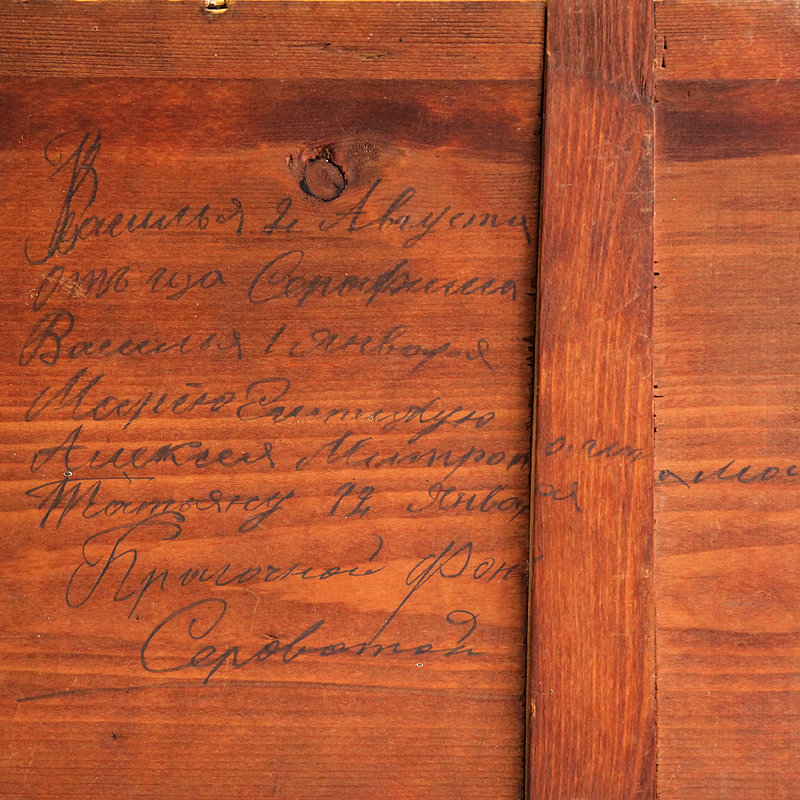 Василья 2 Августа
отъ ца Серафима
Василья 1 января
Марію Египтскую
Алексея Митрополита Мос
Татьяну 12 Января
Прыгочной фонъ
Сероватой